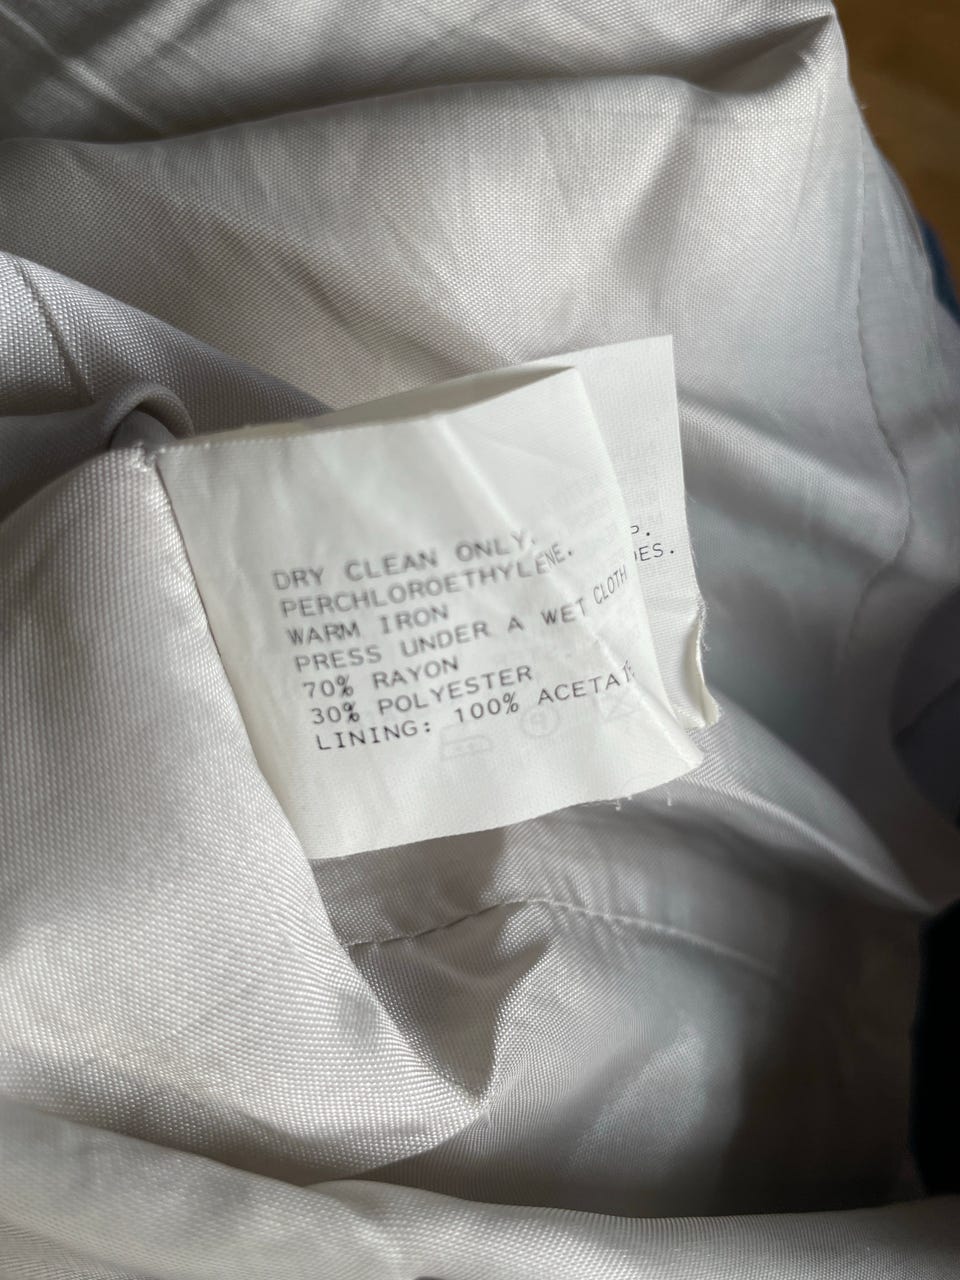 DRY CLEAN ONLY.
PERCHLOROETHYLENE.
WARM IRON
PRESS UNDER A WET CLOTH
70% RAYON
30% POLYESTER
LINING: 100% ACETATE